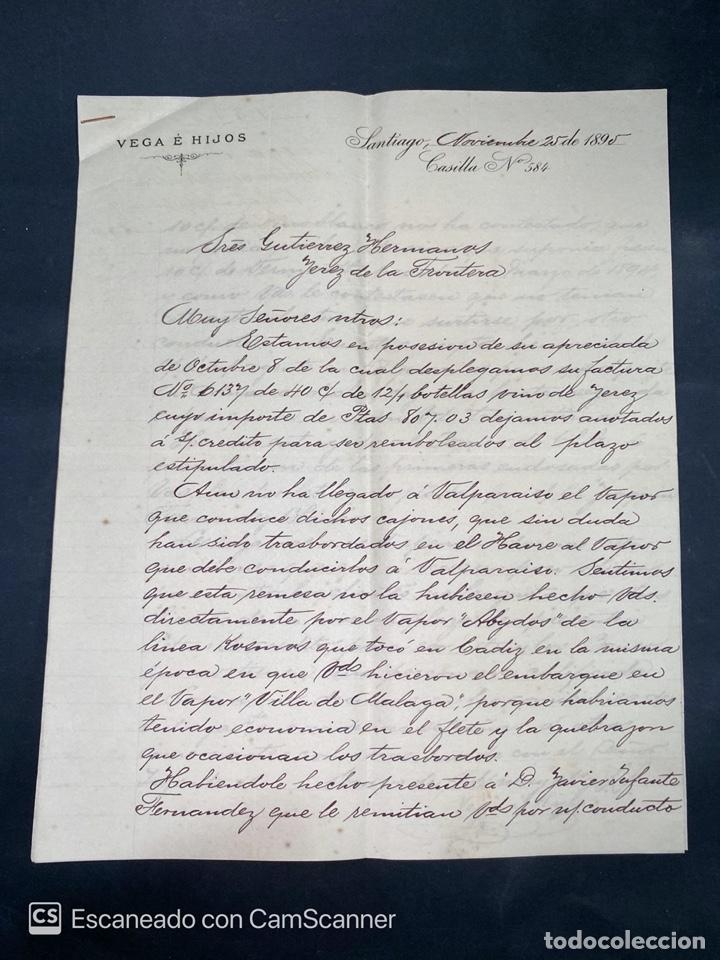 VEGA É HIJOS
Santiago, Noviembre 25 de 1895
Casilla Nº 584
Sres Gutierrez Hermanos
Jerez de la Frontera
Muy Señores ntros:
Estamos en posesion de su apreciada
de Octubre 8 de la cual desplegamos su factura
Nº 6137 de 40 C/ de 12/1 botellas vino de Jerez
cuyo importe de Ptas 807.03 dejamos anotados
á s/. credito para ser rembolsados al plazo
estipulado.
Aun no ha llegado á Valparaiso el vapor
que conduce dichos cajones, que sin duda
han sido trasbordados en el Havre al Vapor
que debe conducirlos á Valparaiso. Sentimos
que esta remesa no la hubiesen hecho Vds.
directamente por el Vapor "Abydos" de la
linea Kosmos que tocó en Cadiz en la misma
época en que Vds hicieron el embarque en
el Vapor "Villa de Malaga", porque habriamos
tenido economia en el flete y la quebrazon
que ocasionan los trasbordos.
Habiendole hecho presente á D. Javier Infante
Fernandez que le remitian Vds por n/. conducto
CS Escaneado con CamScanner
todocoleccion